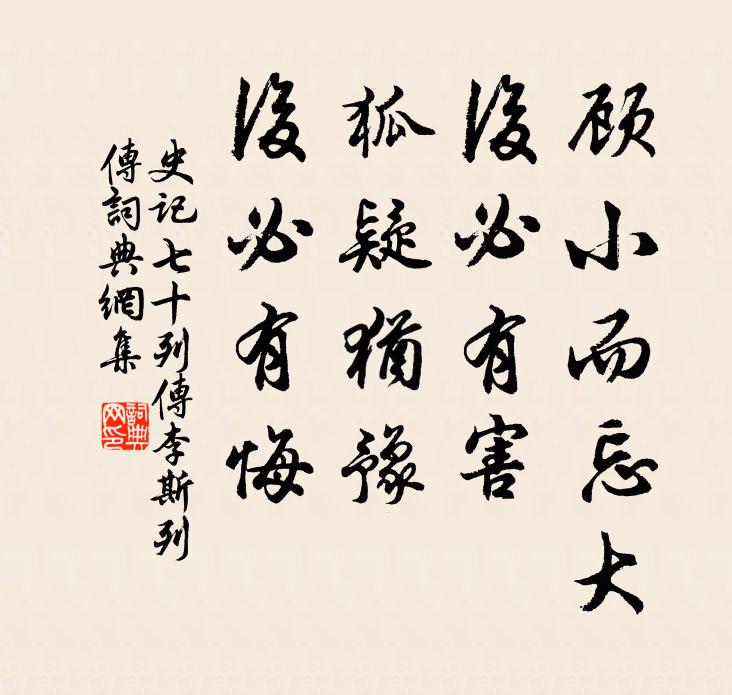 顾小而忘大
後必有害
狐疑猶豫
後必有悔
史记七十列傳李斯列
傳詞典網集
詞典网印